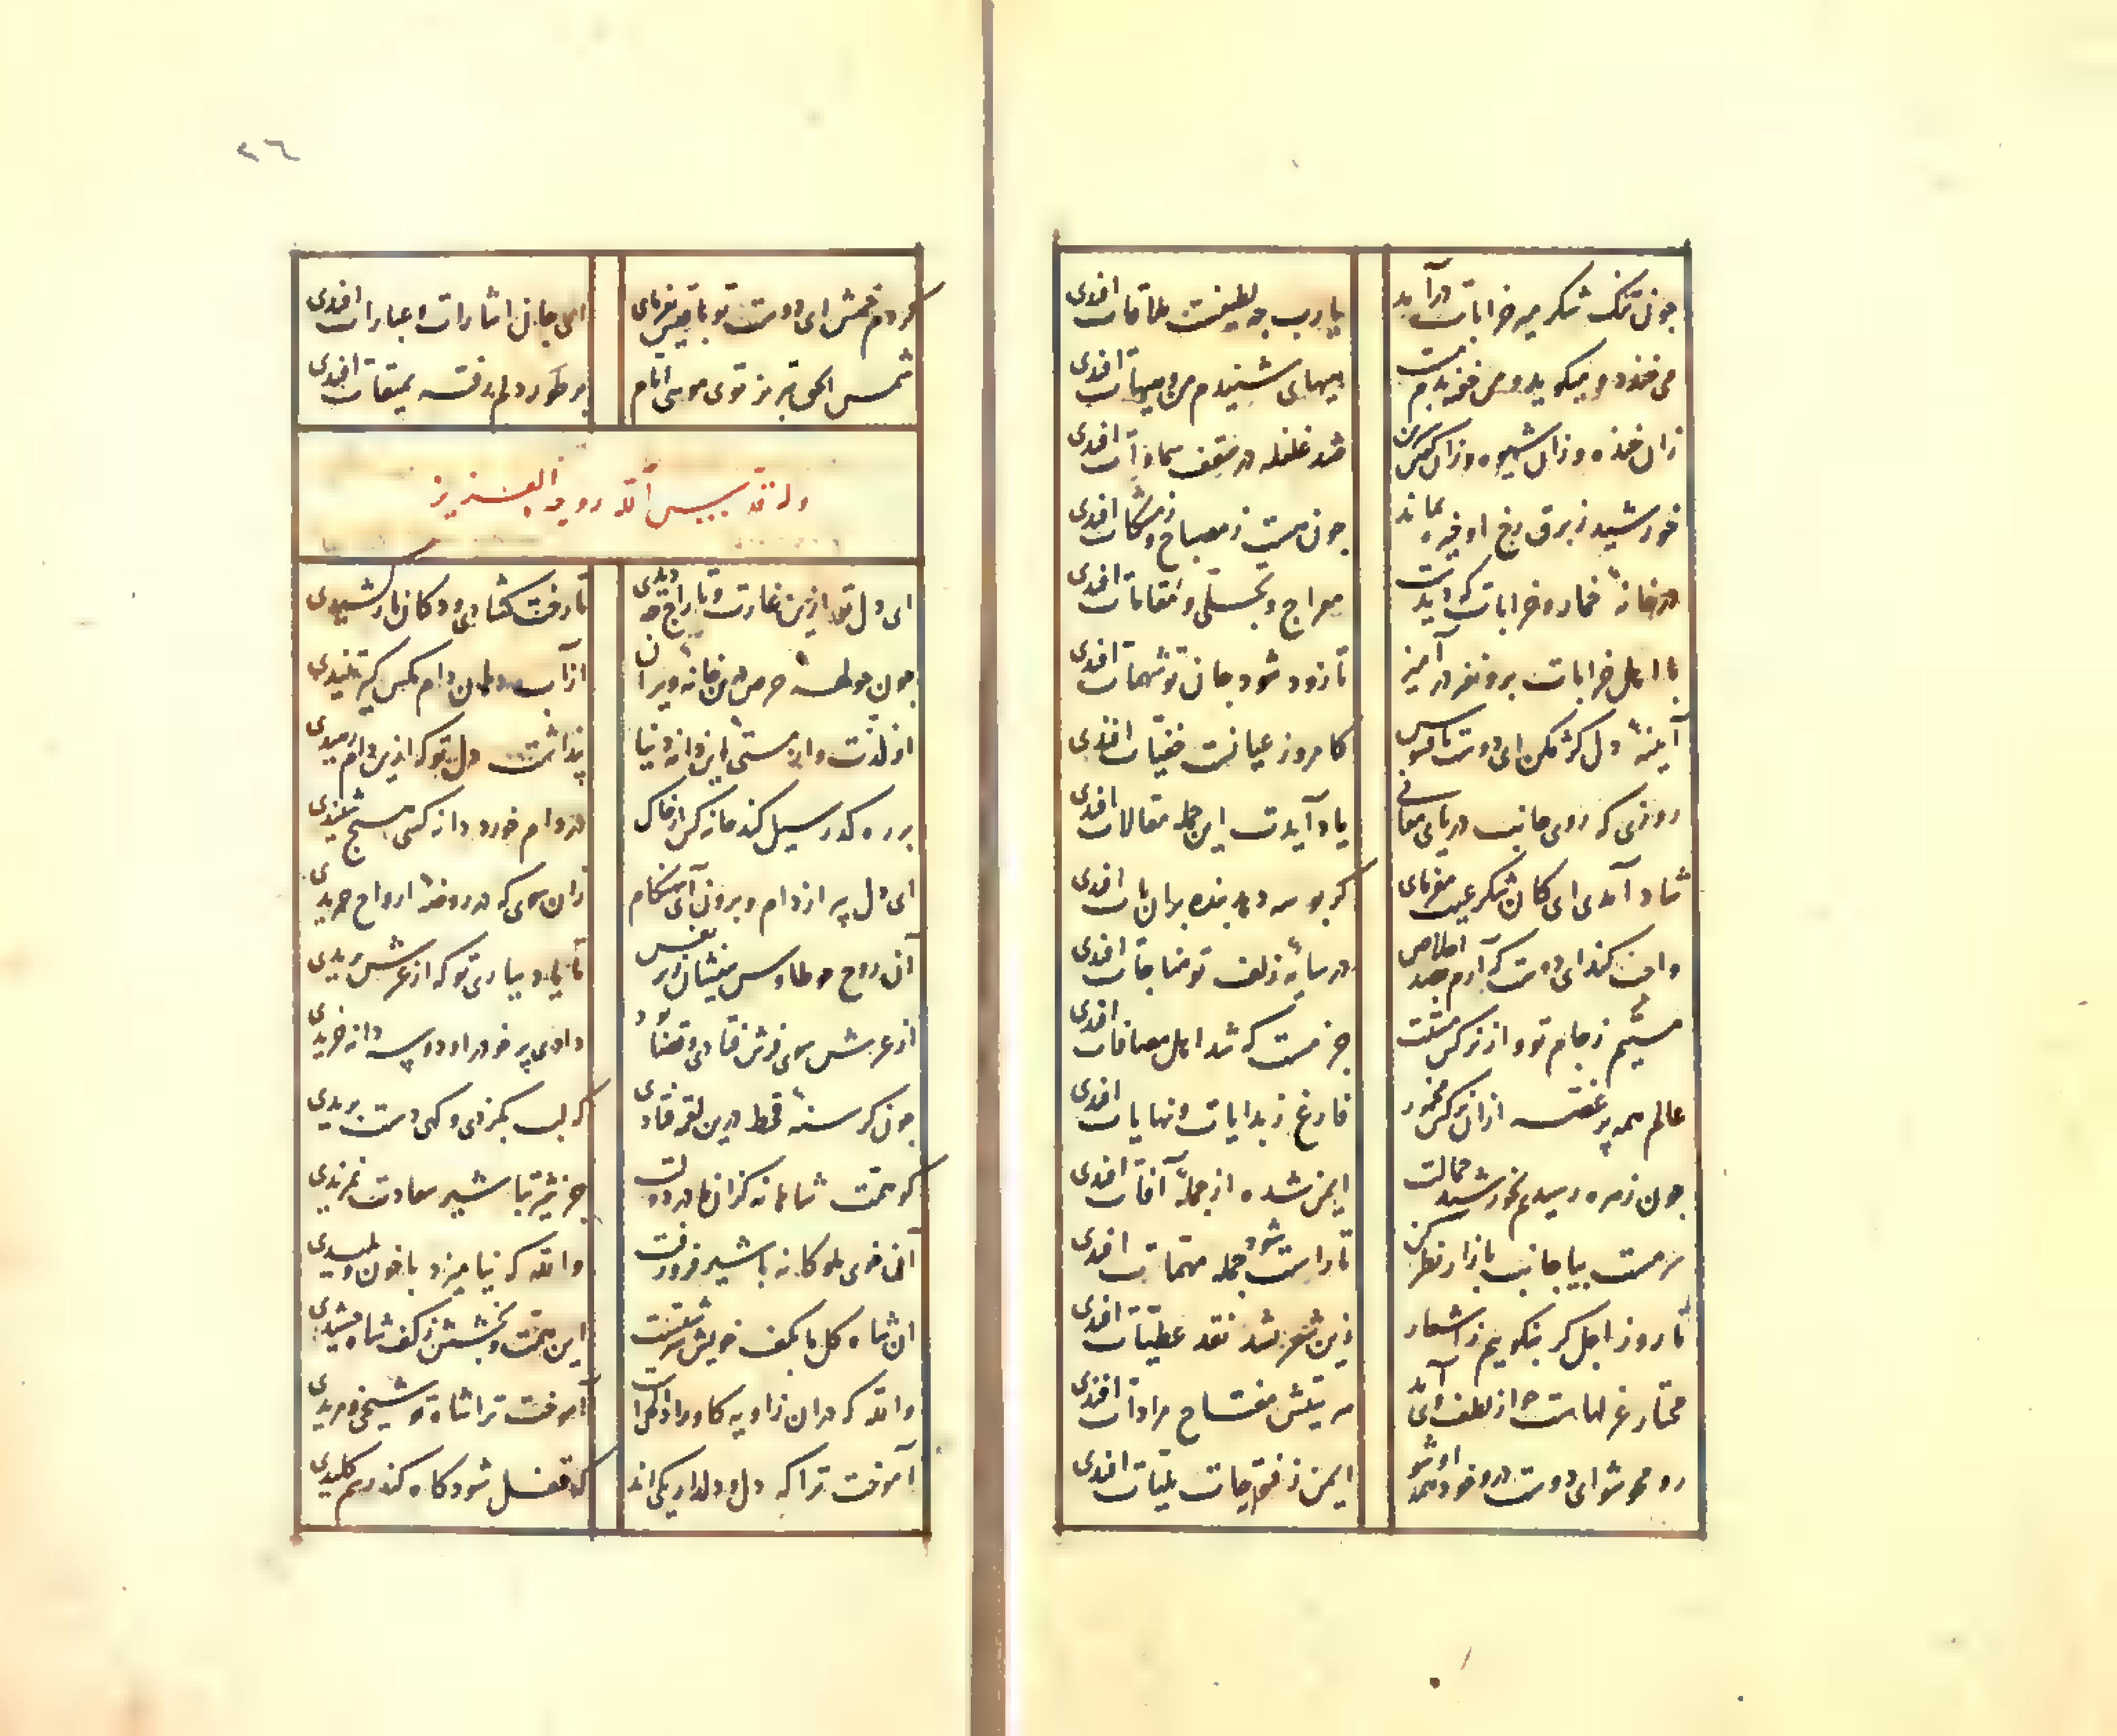 چون تنک شکر میر خرابات درآید یارب چه لطیفست ملاقات افندی
می خندد و میکوید و من خفته بدم مست هیهای شنیدم من و هیهات افندی
زان خنده و زان شیوه و زان شد غلغله در سقف سماوات افندی
خورشید ز برق رخ او خیره بماند چون هست ز مصباح و ز مشکات افندی
در خانه خمار و خرابات که دیدست معراج و تجلی و مقامات افندی
با اهل خرابات برو نغز درآمیز تا زود شود جان تو شهمات افندی
آیینه دل کژ مکن ای دوست کامروز عیانست خفیات افندی
روزی که روی جانب دریای معانی یاد آیدت این جمله مقالات افندی
شاد آمدی ای کان شکر عیب مفرمای کر بوسه دهد بنده بهان پات افندی
واجب کند ای دوست که آرم بصد اخلاص در سایه زلف تو مناجات افندی
مستیم ز جام تو و از نرکس مستت جز مست که شد اهل مصافات افندی
عالم همه پر غصه از آن نرکس مخمور فارغ ز بدایات و نهایات افندی
چون زهره رسیدیم بخورشید جمالت ایمن شده از جمله آفات افندی
سرمست بیا جانب بازار نظر کن تا راست شود جمله مهمات افندی
تا روز اجل کر بنکویم ز اشعار زین شعر شد نقد عطیات افندی
مفتاح مرادات افندی
رو محو شو ای دوست ایمن ز بلیات افندی
۲۶
کردم خمش ای دوست تو باقیش بفرمای ای جان اشارات و عبارات افندی
شمس الحق تبریز توی موسی ایام بر طور دلم رفته بمیقات افندی
وله قدس الله روحه العزیز
ای دل تو ازین غارت و تاراج چه دیدی تا رخت کشادی و دکان باز کشیدی
چون جولهه حرص درین خانه ویران از آب دهان دام مکس کیر تنیدی
از لذت و از مستی این دانه دنیا پنداشت دل تو که ازین دام رمیدی
در دام خورد دانه کسی هیچ شنیدی
ای دل بپر از دام و برون آی زان سوی که در روضه ارواح چریدی
از عرش سوی فرش فتادی و قضا بود دادی پر خود را و دو سه دانه خریدی
چون کرسنه قحط درین لقمه فتادی که لب بکزیدی و کهی دست بریدی
کو همت شاهانه جز شیر سعادت نمزیدی
آن خوی ملوکانه که با شیر فرورفت والله که نیامیزد با خون و پلیدی
آن شاه کل ما بکف خویش سرشتست این همت و بخشش ز کف شاه چشیدی
والله که در آن زاویه آموخت ترا شاه تو شیخی و مریدی
آموخت ترا که دل و دلدار یکی اند که قفل شود کاه کند رسم کلیدی